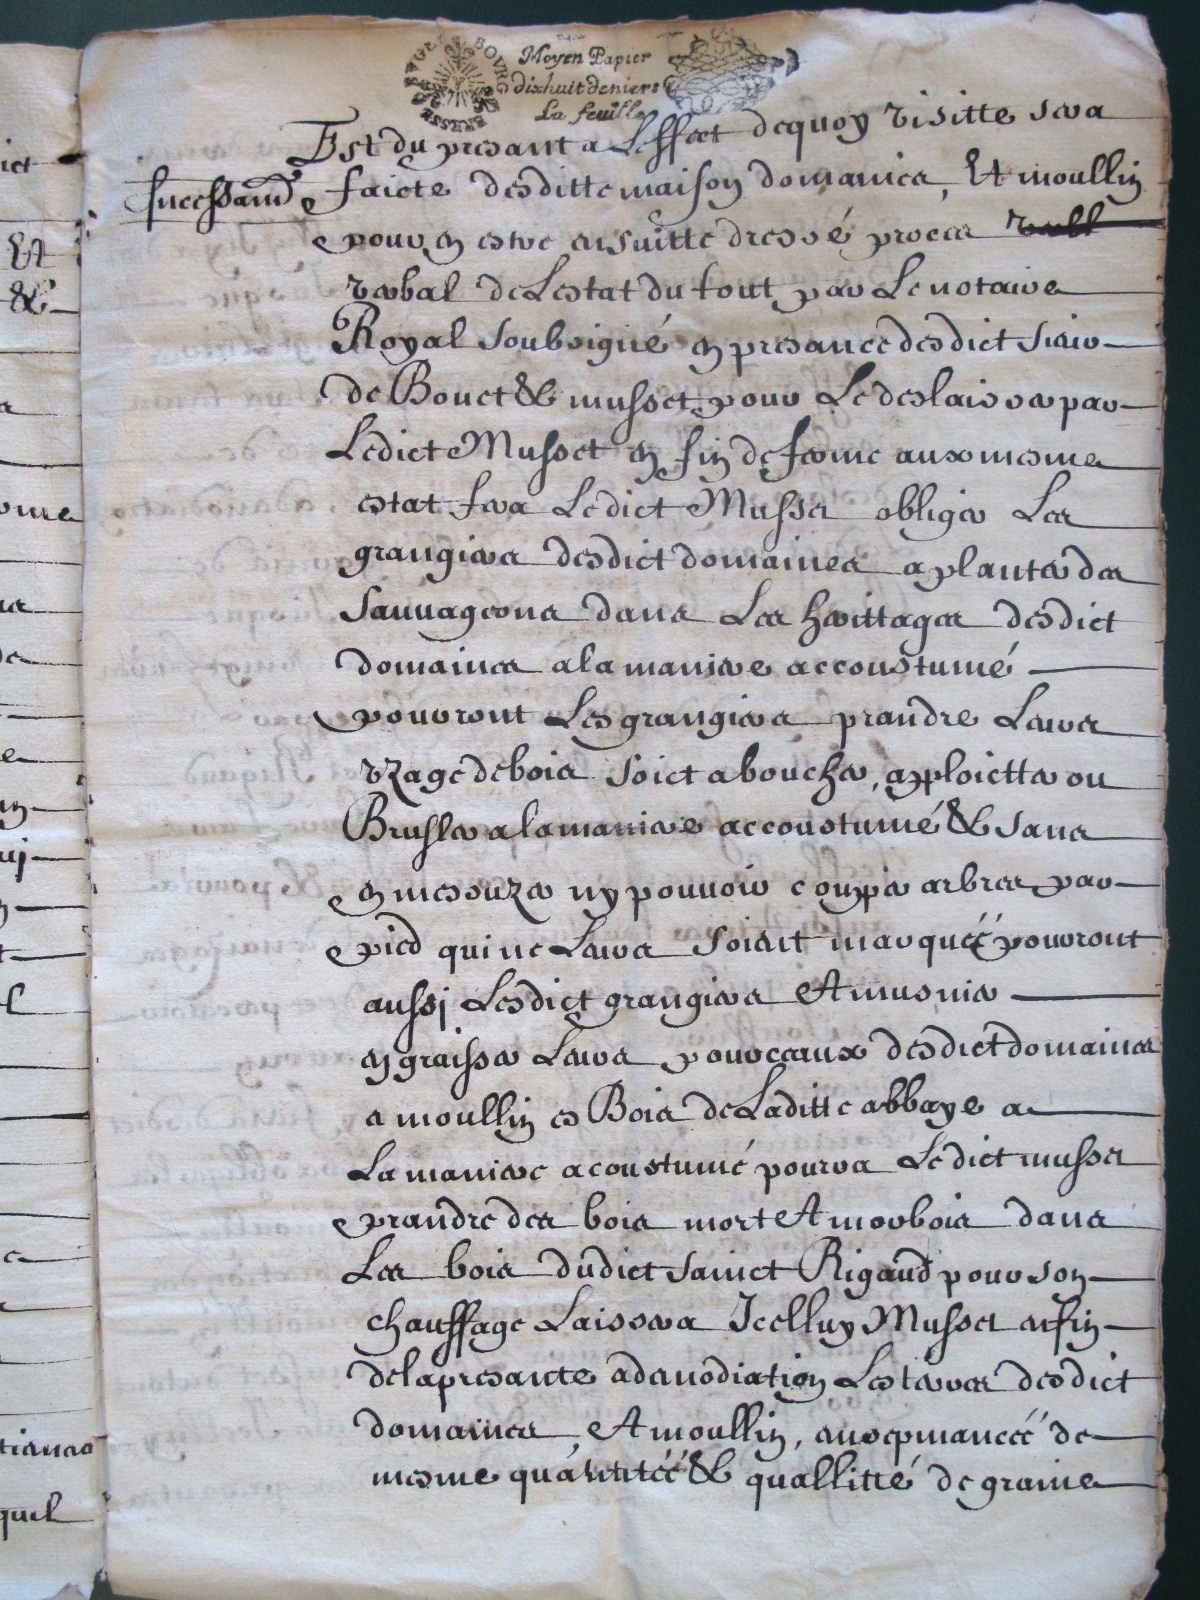 BRESSE BUGEY BOURG
Moyen Papier
dixhuit deniers
La feuille
Est du presant a Leffect dequoy visitte sera
faicte desditte maison domaines, Et moullin
pour en estre ensuitte dressé proces
verbal de Lestat du tout par Le notaire
Royal soubsigné en presance desdict sieur
de Bouet & musset pour Le deslaisser par
Ledict Musset en fin de ferme aux mesme
estat fera Ledict Musset obliger Les
grangiers desdict domaines a planter des
sauvageons dans Les herittages desdict
domaines a la maniere accoustumé
pourront Les grangiers prandre Leurs
uzage de bois soict a boucher, exploictter ou
Brusler a la maniere accoustumé & sans
en mesuzer ny pouvoir couper arbres par
pied qui ne Leurs soient marquéé pourront
aussj Lesdict grangiers Et musnier
engraisser Leurs pourceaux desdict domaines
a moullin es Bois de Laditte abbaye a
La maniere acoustumé pourra Ledict musset
prandre des bois mort Et morbois dans
Les bois dudict sainct Rigaud pour son
chauffage Laissera Icelluy Musset en fin
de la presante admodiation Les terres desdict
domaines, Et moullin, ensepmancéé de
mesme quantitéé & quallitté de grains